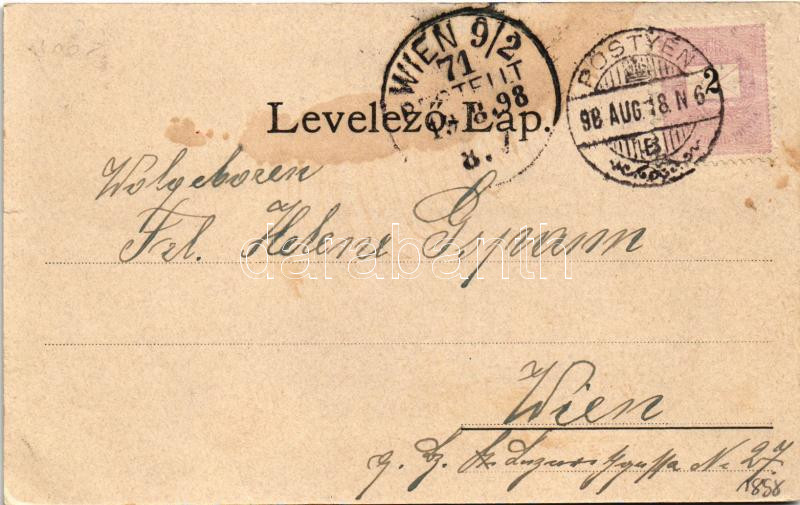 WIEN 9/2
71
BESTELLT
8.98
8.
PÖSTYÉN
98 AUG. 18. N 6
B
2
Levelező-Lap.
Wolgeboren
Frl. Helene
darabanth
Wien
No 27
1898